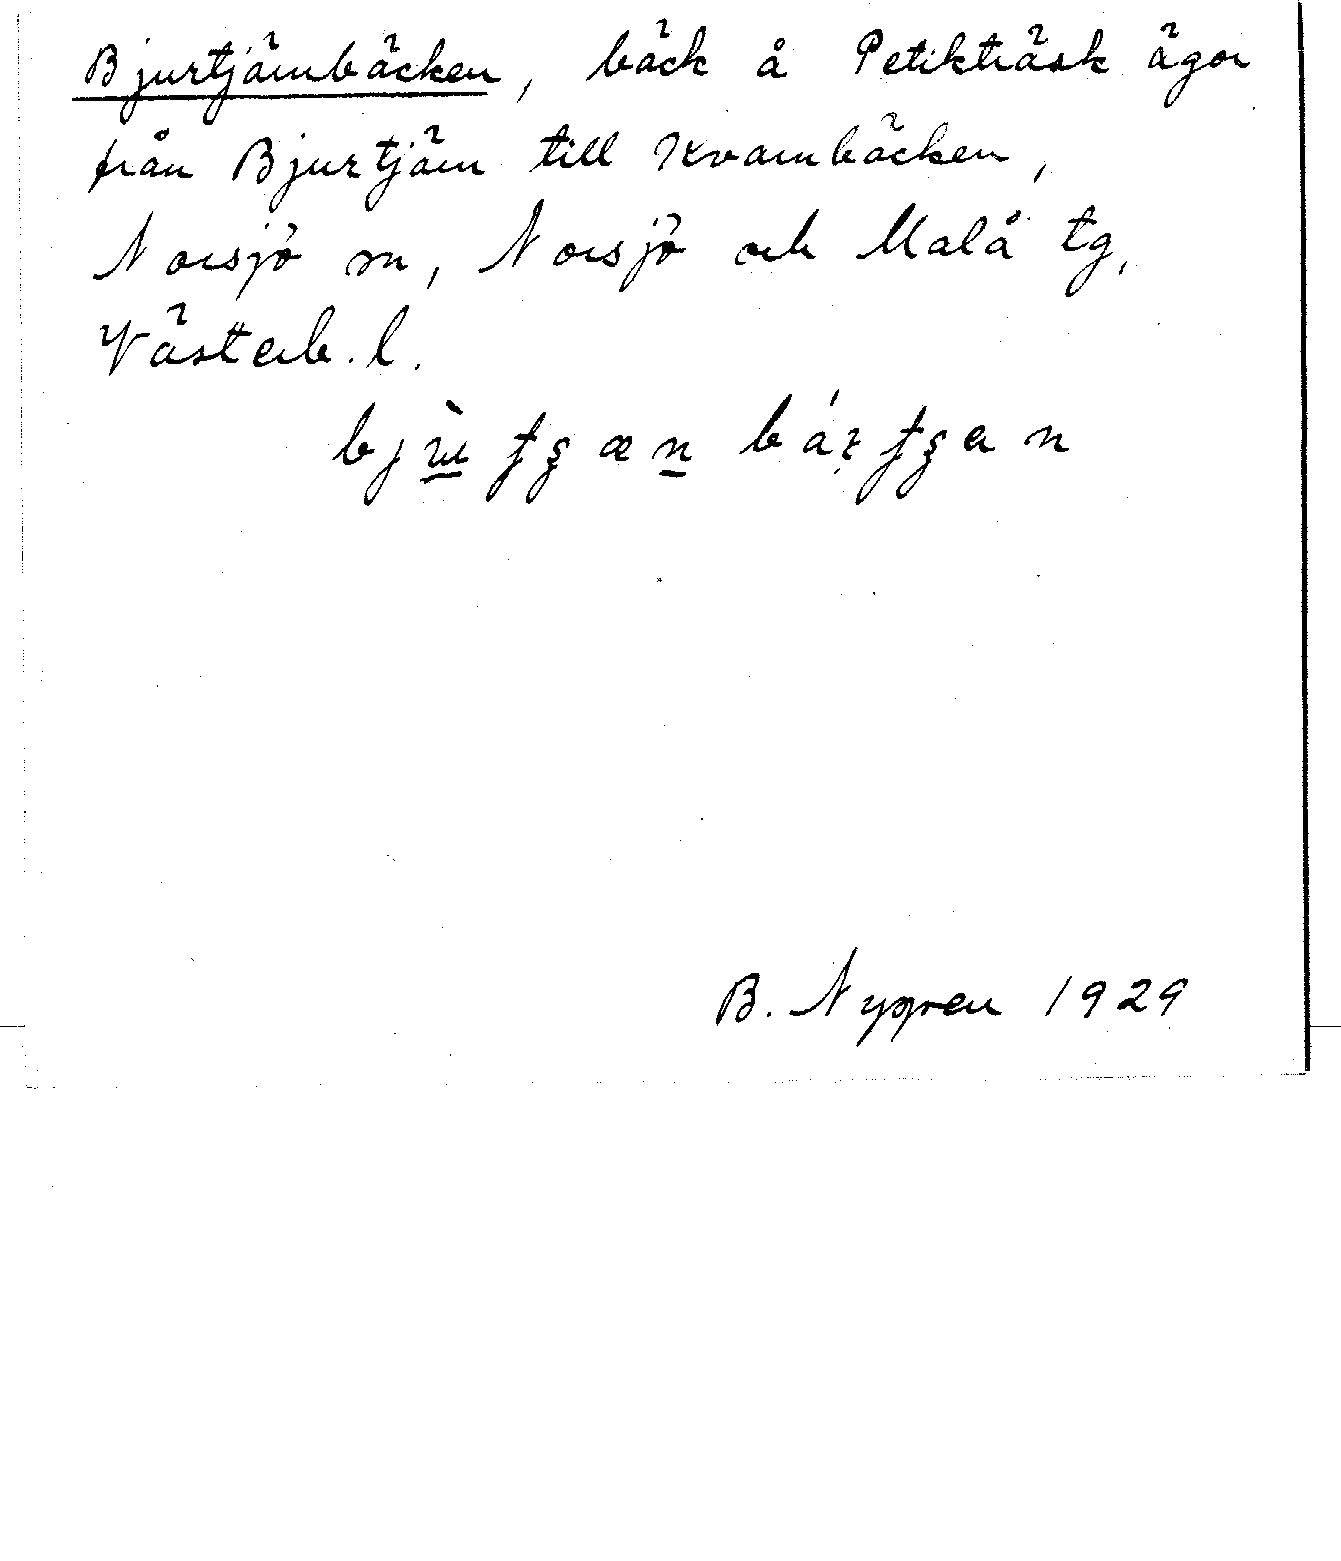 Bjurtjärnbäcken, bäck å Petikträsk ägor
från Bjurtjärn till Kvarnbäcken,
Norsjö sn, Norsjö och Malå tg,
Västerb. l.
B. Nygren 1929